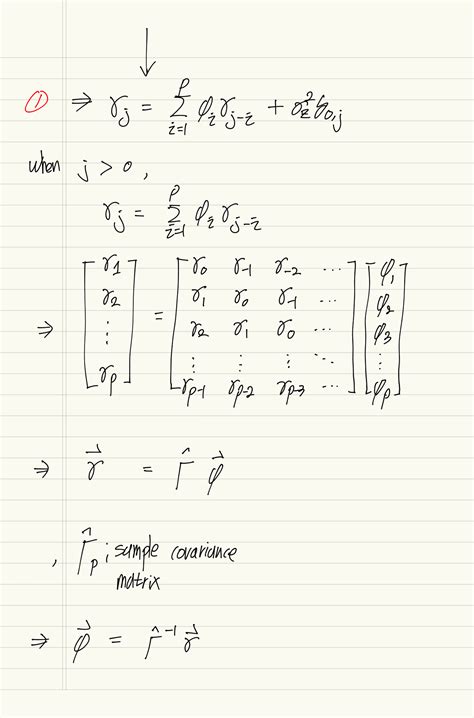 ① ⇒ γj = Σ_{i=1}^{p} φi γj-i + σ_ε^2 δ0,j
when j > 0,
γj = Σ_{i=1}^{p} φi γj-i
⇒ [γ1 γ2 ⋮ γp] = [γ0 γ-1 γ-2 ⋯ ; γ1 γ0 γ-1 ⋯ ; γ2 γ1 γ0 ⋯ ; ⋮ ⋮ ⋮ ⋱ ⋮ ; γp-1 γp-2 γp-3 ⋯] [φ1 φ2 φ3 ⋮ φp]
⇒ γ⃗ = Γ̂ φ⃗
, Γ̂p ; sample covariance
matrix
⇒ φ⃗ = Γ̂^-1 γ⃗